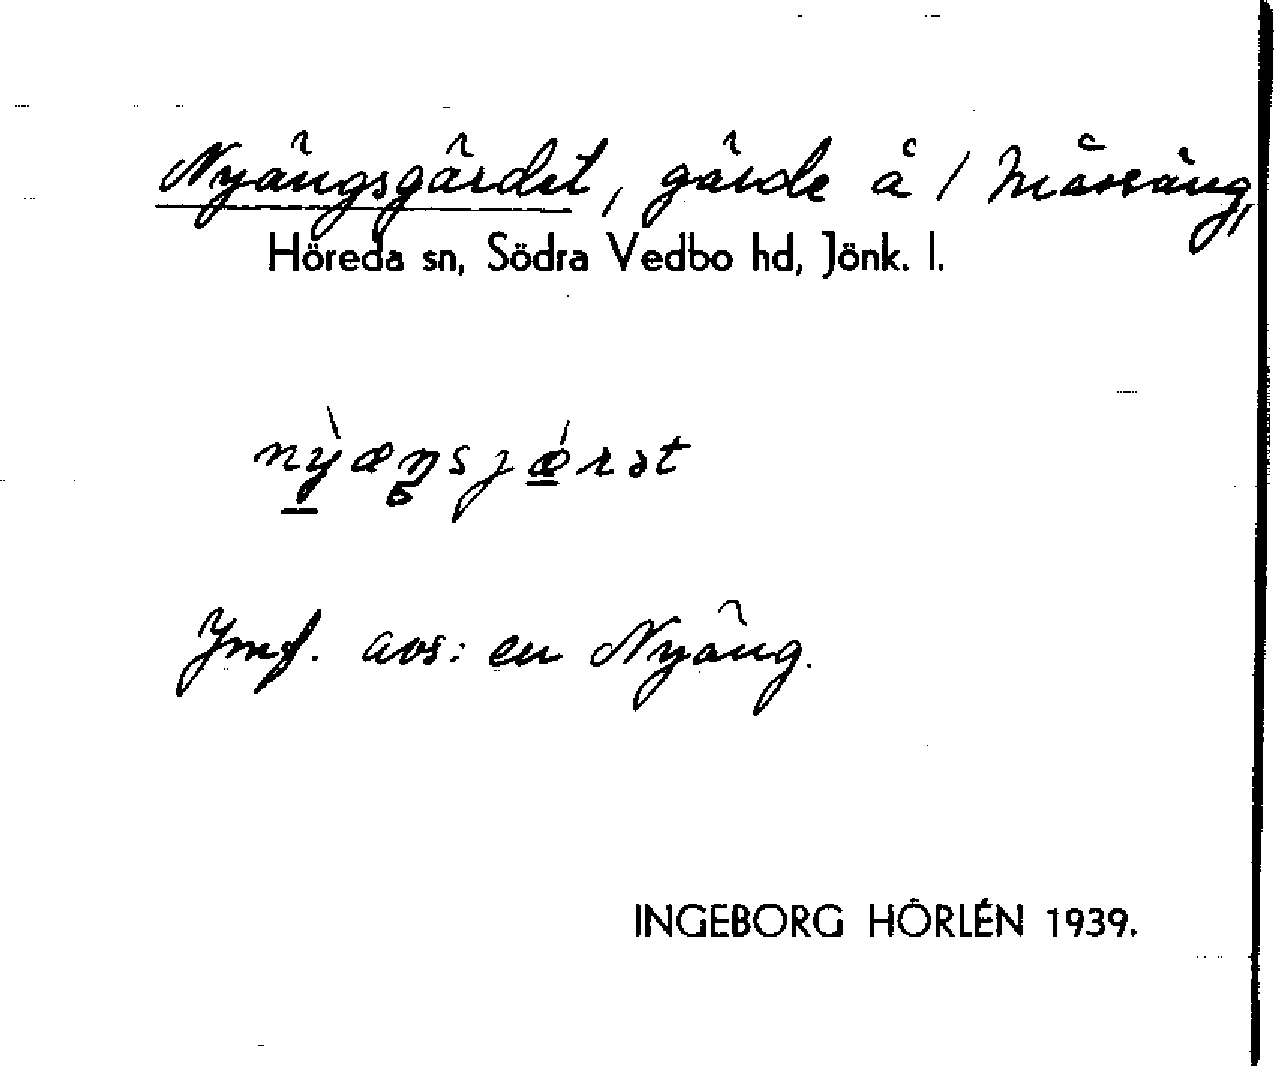 Nyängsgärdet, gärde å / Måseäng,
Höreda sn, Södra Vedbo hd, Jönk. l.
nỳæŋsjǽrət
Jmf. avs: en Nyäng.
INGEBORG HÖRLÉN 1939.